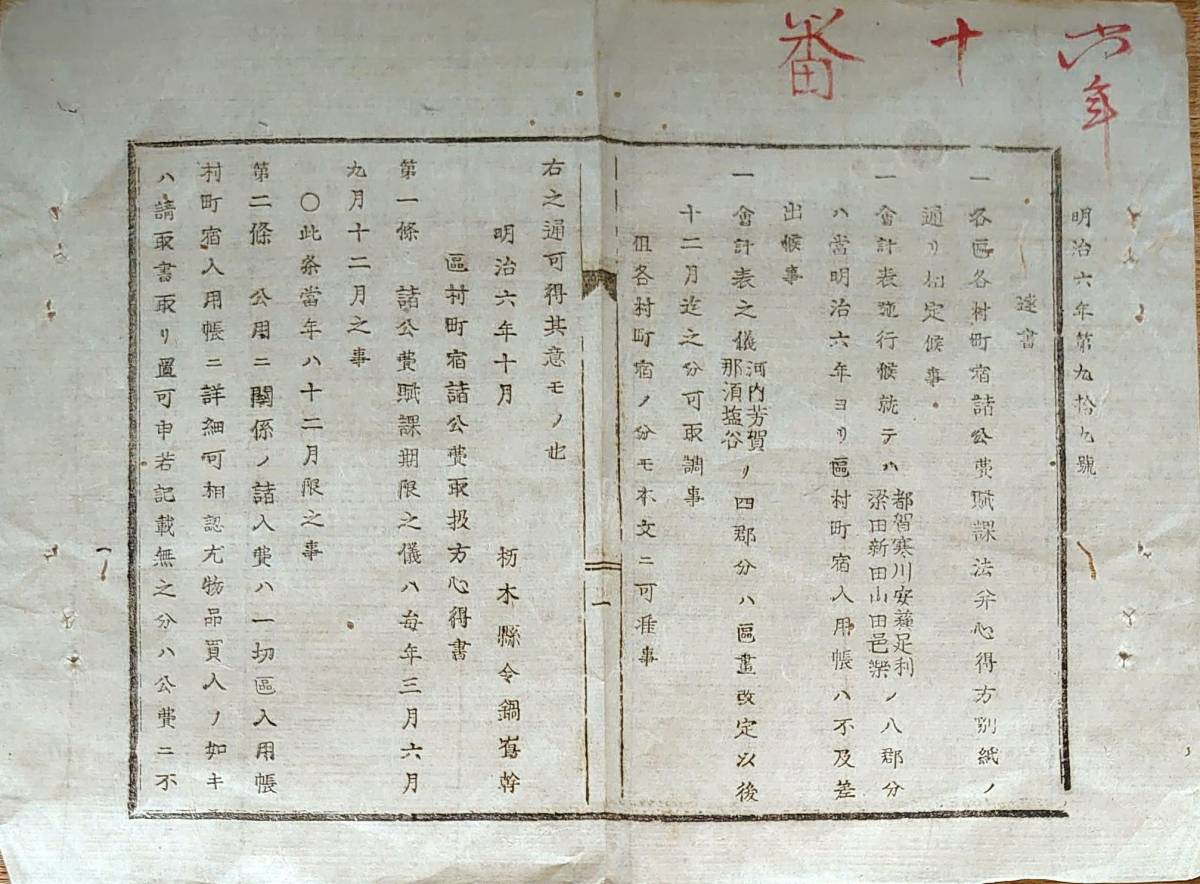 六年
十
番
明治六年第九拾九號
達書
一 各區各村町宿諸公費賦課法并心得方別紙ノ
通リ相定候事
一 會計表施行候就テハ都賀寒川安蘓足利梁田新田山田邑樂ノ八郡分
ハ當明治六年ヨリ區村町宿入用帳ハ不及差
出候事
一 會計表之儀河内芳賀那須塩谷リ四郡分ハ區畫改定以後
十二月迄之分可取調事
但各村町宿ノ分モ本文ニ可准事
一
右之通可得其意モノ也
明治六年十月 栃木縣令鍋嶌幹
區村町宿諸公費取扱方心得書
第一條 諸公費賦課期限之儀ハ毎年三月六月
九月十二月之事
〇此条當年ハ十二月限之事
第二條 公用ニ関係ノ諸入費ハ一切區入用帳
村町宿入用帳ニ詳細可相認尤物品買入ノ如キ
ハ請取書取リ置可申若記載無之分ハ公費ニ不